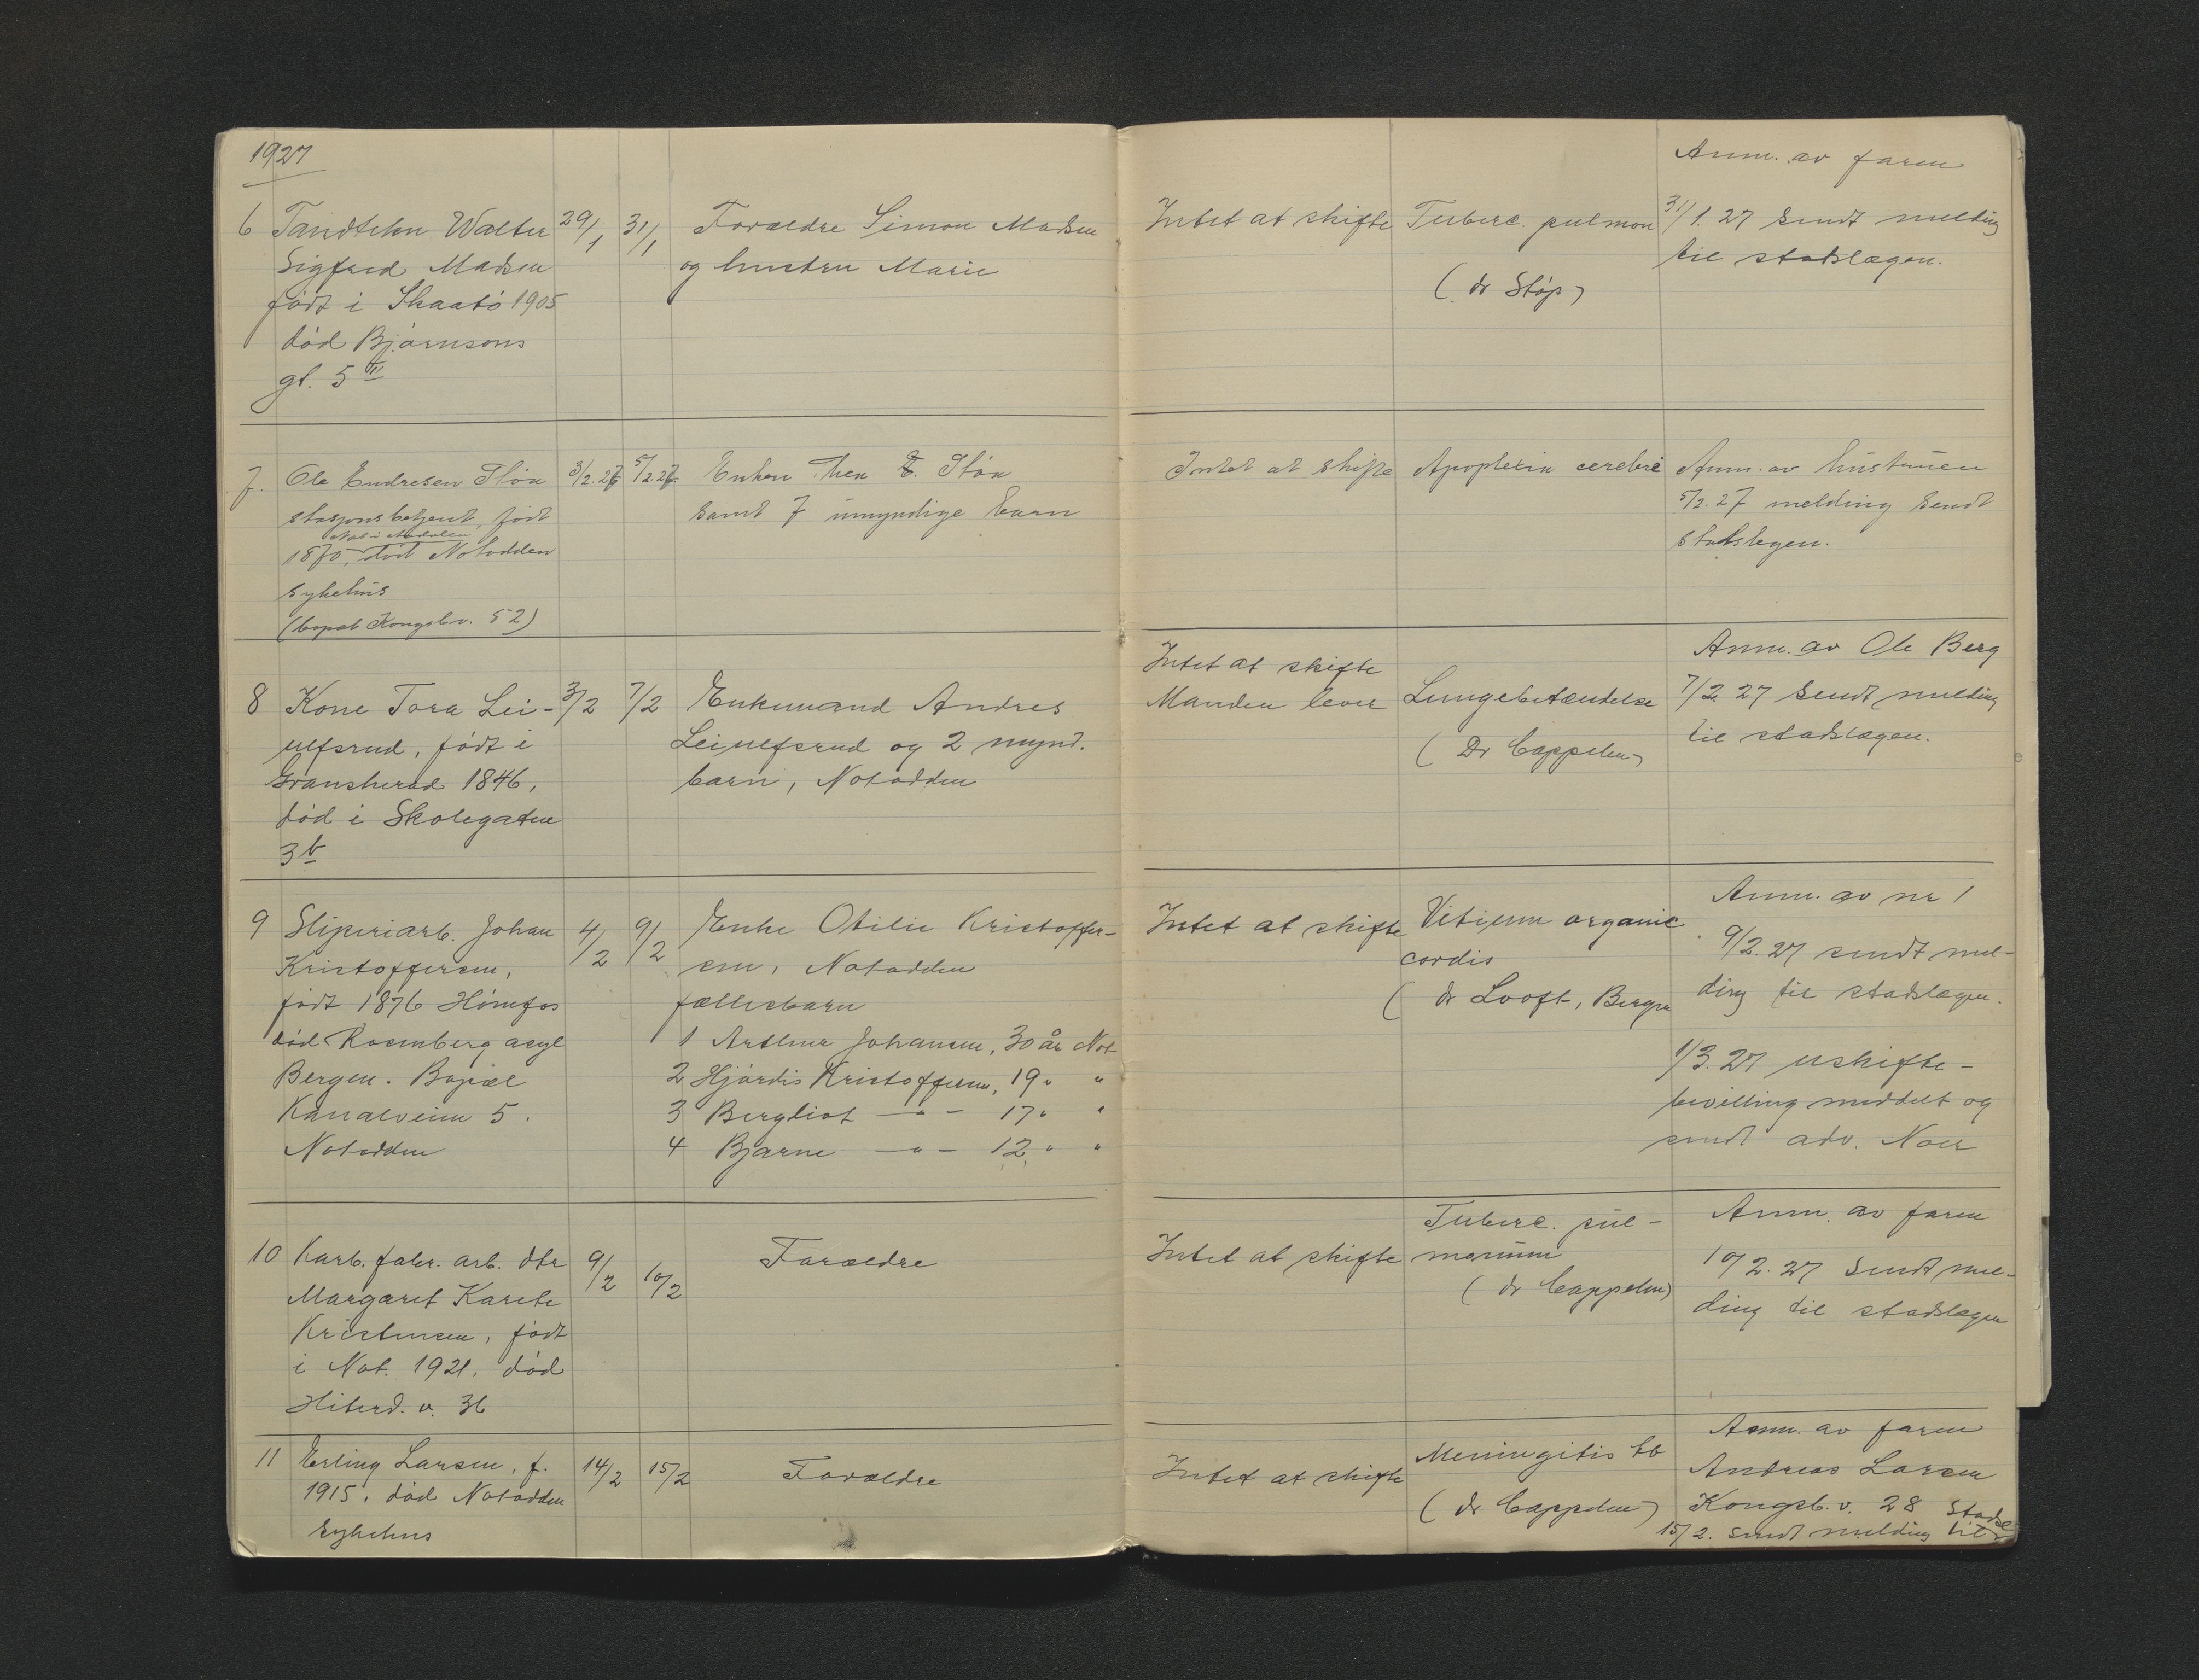 1927
6 Tandtekn Walter 29/1 31/1 Forældre Simon Madsen
Sigfred Madsen og hustru Marie
født i Skaatö 1905
död Björnsons
gt. 5 II
Intet at skifte Tuberc. pulmon
(dr Støp)
Anm. av faren
31/1.27 sendt melding
til stadslægen.
7. Ole Endresen 3/2.27 5/2.27 Enken Thea
stasjonsbetjent, født samt 7 umyndige barn
1870, død Notodden
sykehus
(bopæl Kongsb.v. 52)
Intet at skifte Apoplexia cerebri
Anm. av hustruen
5/2.27 melding sendt
stadslegen.
8 Kone Tora Lei- 3/2 7/2 Enkemand Andres
ulfsrud, født i Leiulfsrud og 2 mynd.
Gransherad 1846, barn, Notodden
død i Skolegaten
3b
Intet at skifte
Manden lever Lungebetændelse
(Dr Cappelen)
Anm. av Ole Berg
7/2 27 sendt melding
til stadslægen.
9 Sliperiarb. Johan 4/2 9/2 Enke Otilie Kristoffer-
Kristoffersen, sen, Notodden
født 1876 Hönefos fællesbarn
död Rosenberg asyl 1 Arthur Johansen, 30 år Not
Bergen. Bopæl 2 Hjördis Kristoffersen, 19 " "
Kanalveien 5. 3 Bergliot —"— 17 " "
Notodden 4 Bjarne —"— 12 " "
Intet at skifte Vitium organic
cordis
(dr Looft, Bergen
Anm. av nr 1
9/2.27 sendt mel-
ding til stadslægen.
1/3.27 uskifte-
bevilling meddelt og
sendt adv. Noer
10 Karb. fabr. arb. dtr 9/2 10/2 Forældre
Margaret Karete
Kristensen, født
i Not. 1921, död
Hiterd. v. 36
Intet at skifte Tuberc. pul-
monum
(dr Cappelen)
Anm. av faren
10/2.27 sendt mel-
ding til stadslægen
11 Erling Larsen, f. 14/2 15/2 Forældre
1915. död Notodden
sykehus
Intet at skifte Meningitis tb
(dr Cappelen)
Anm. av faren
Andreas Larsen
Kongsb. v. 28
15/2. sendt melding til stadsl